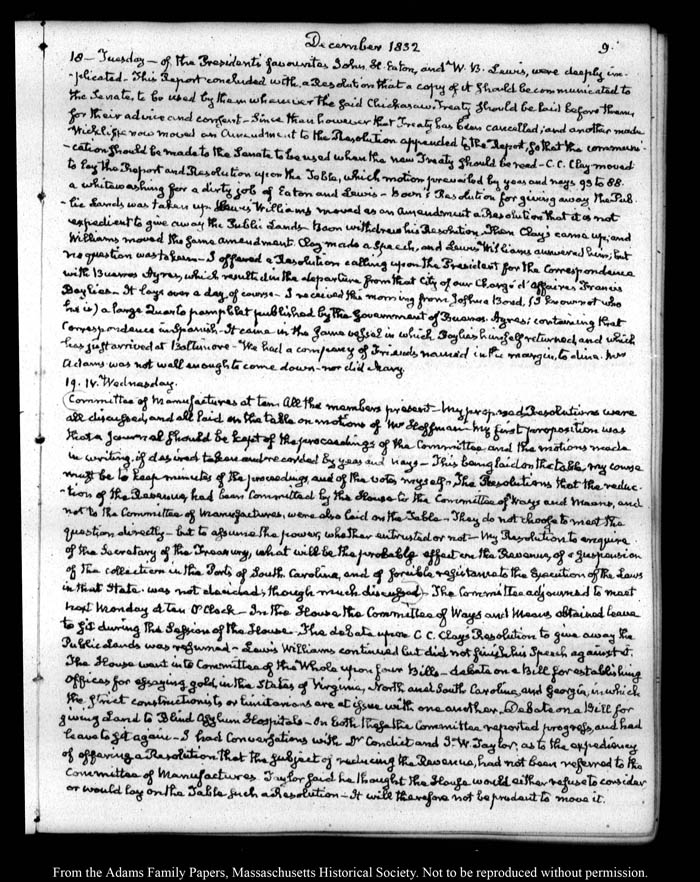 December 1832 9.
18— Tuesday— of the Presidents favourites John H. Eaton, and W. B. Lewis, were deeply im-
-plicated— This Report concluded with a Resolution that a copy of it should be communicated to
the Senate, to be used by them whenever the said Chickasaw Treaty should be laid before them,
for their advice and consent— Since then however that Treaty has been cancelled; and another made
Wickliffe now moved an Amendment to the Resolution appended to the Report, so that the communi-
-cation should be made to the Senate to be used when the new Treaty should be read— C. C. Clay moved
to lay the Report and Resolution upon the Table, which motion prevailed by yeas and nays 93 to 88.
a whitewashing for a dirty job of Eaton and Lewis— Boon's Resolution for giving away the Pub-
-lic Lands was taken up. Lewis Williams moved as an Amendment a Resolution that it is not
expedient to give away the Public Lands— Boon withdrew his Resolution. Then Clay's came up; and
Williams moved the same amendment. Clay made a Speech, and Lewis Williams answered him; but
no question was taken— I offered a Resolution calling upon the President for the Correspondence
with Buenos Ayres, which resulted in the departure from that City of our Chargé d'affaires Francis
Baylies— It lays over a day, of course— I received this morning from Joshua Bond, (I know not who
he is) a large Quarto pamphlet published by the Government of Buenos Ayres; containing that
Correspondence in Spanish— It came in the same vessel in which Baylies himself returned, and which
has just arrived at Baltimore— We had a company of Friends named in the margin, to dine. Mrs
Adams was not well enough to come down— nor did Mary.
19. IV. Wednesday.
Committee of Manufactures at ten. All the members present— My proposed Resolutions were
all discussed, and all laid on the table on motions of Mr Hoffman— My first proposition was
that a Journal should be kept of the proceedings of the Committee, and the motions made
in writing, if desired taken and recorded by yeas and nays— This being laid on the table, my course
must be to keep minutes of the proceedings, and of the votes myself. The Resolutions that the reduc-
-tion of the Revenue, had been Committed by the House to the Committee of Ways and Means, and
not to the Committee of Manufactures, were also laid on the Table— They do not choose to meet the
question directly— but to assume the power, whether entrusted or not— My Resolution to enquire
of the Secretary of the Treasury, what will be the probable effect on the Revenue, of a suspension
of the collection in the Ports of South Carolina, and of forcible resistance to the Execution of the Laws
in that State was not decided, though much discussed— The Committee adjourned to meet
next Monday at ten O'Clock— In the House the Committee of Ways and Means obtained leave
to sit during the Session of the House. The debate upon C. C. Clay's Resolution to give away the
Public Lands was resumed— Lewis Williams continued but did not finish his Speech against it.
The House went into Committee of the Whole upon four Bills— debate on a Bill for establishing
offices for essaying gold, in the States of Virginia, North and South Carolina, and Georgia; in which
the strict constructionists or limitarians are at issue with one another. Debate on a Bill for
giving Land to Blind Asylum Hospitals— On both these the Committee reported progress, and had
leave to sit again— I had Conversations with Dr Condict and J. W. Taylor, as to the expediency
of offering a Resolution that the subject of reducing the Revenue, had not been referred to the
Committee of Manufactures. Taylor said he thought the House would either refuse to consider
or would lay on the Table such a Resolution— It will therefore not be prudent to move it.
From the Adams Family Papers, Massachusetts Historical Society. Not to be reproduced without permission.